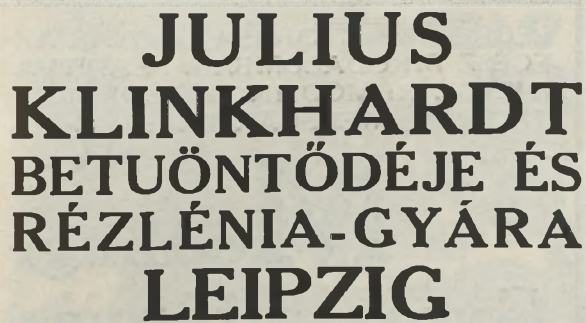 JULIUS
KLINKHARDT
BETUÖNTŐDÉJE ÉS
RÉZLÉNIA-GYÁRA
LEIPZIG